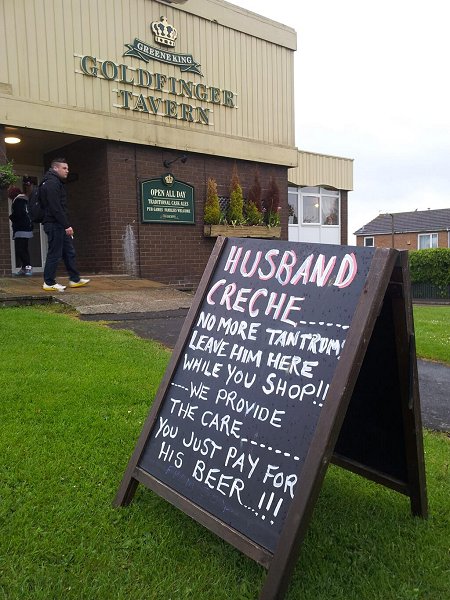 GREENE KING
GOLDFINGER
TAVERN
OPEN ALL DAY
TRADITIONAL CASK ALES
HUSBAND
CRECHE......
NO MORE TANTRUMS
LEAVE HIM HERE
WHILE YOU SHOP!!
....WE PROVIDE
THE CARE........
YOU JUST PAY FOR
HIS BEER...!!!